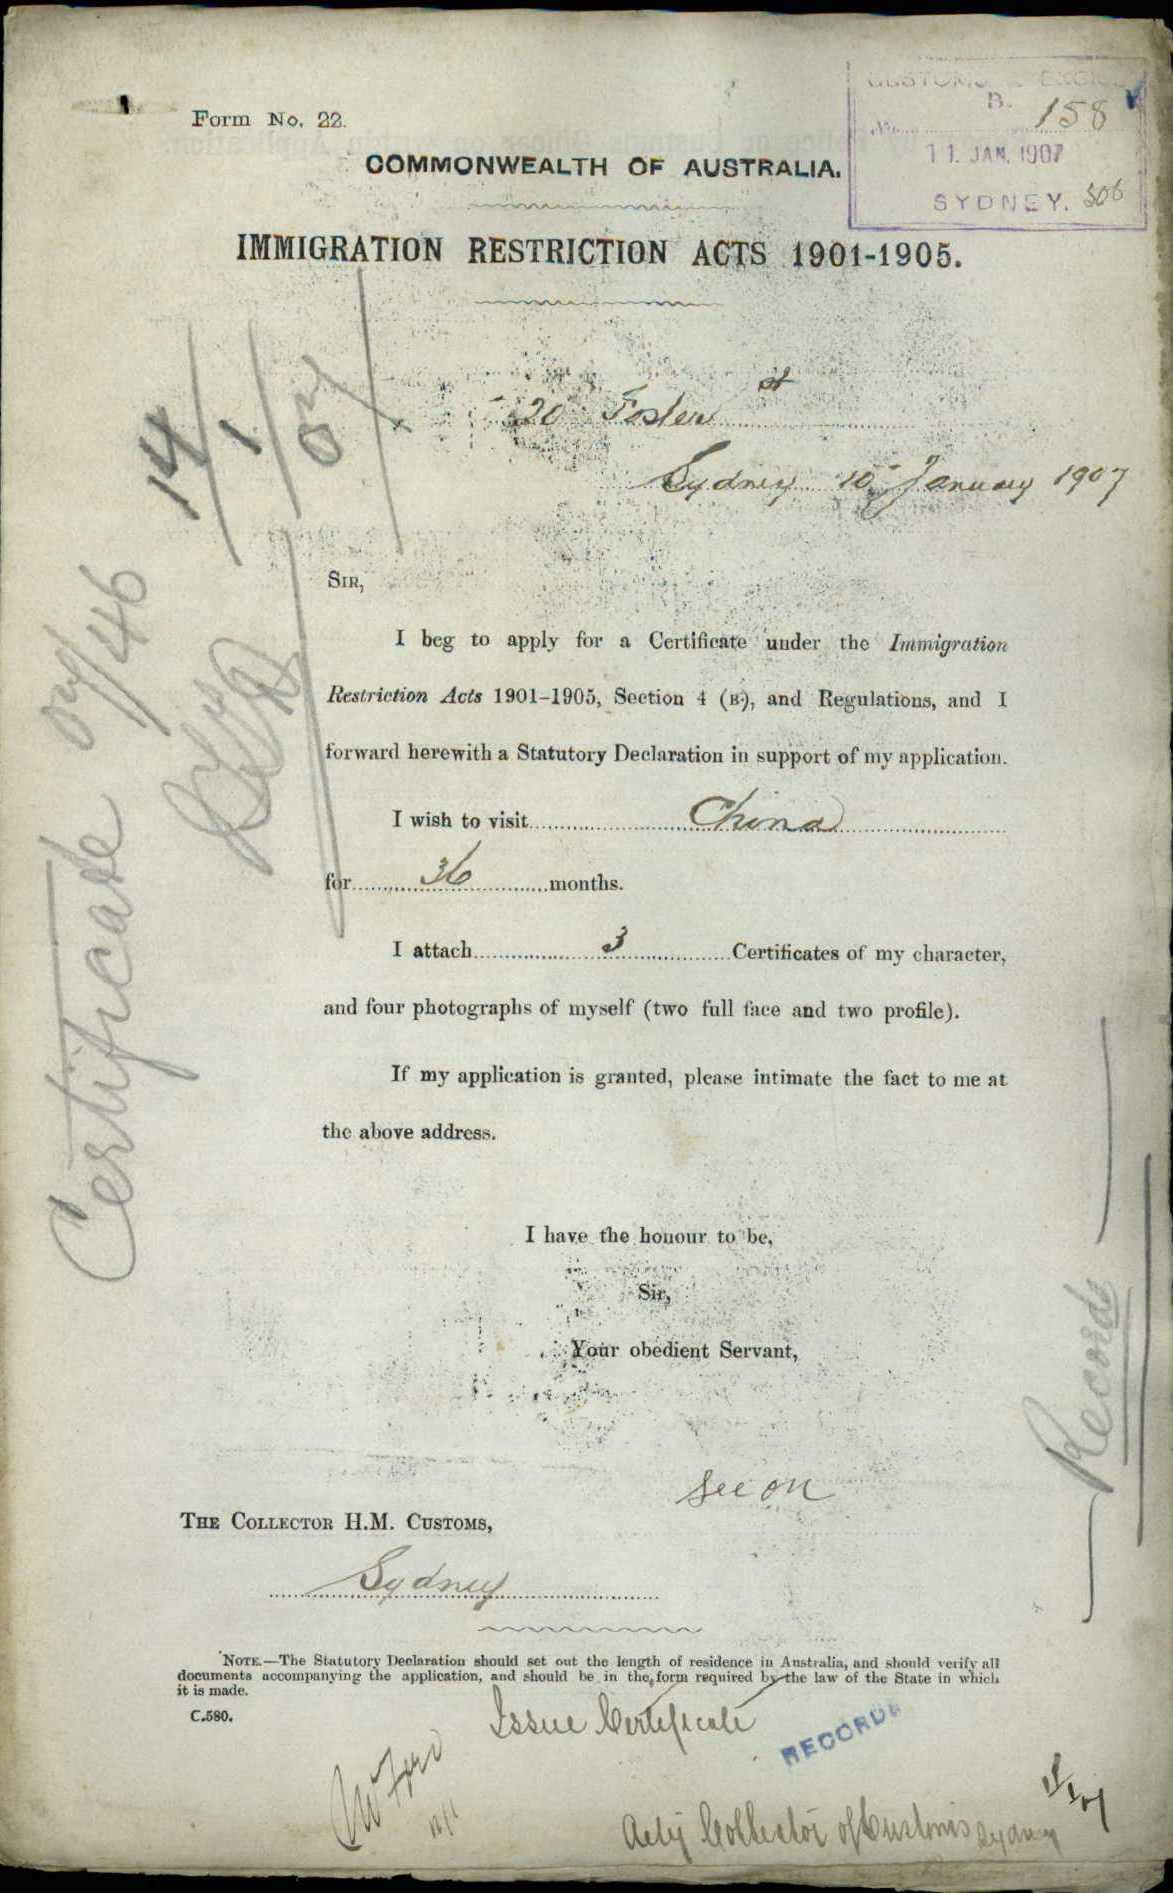 Form No. 22.
CUSTOMS & EXCISE
B.
No. 158
11. JAN. 1907
SYDNEY. 306
COMMONWEALTH OF AUSTRALIA.
IMMIGRATION RESTRICTION ACTS 1901-1905.
14/1/07
20 Foster st
Sydney 10 January 1907
SIR,
I beg to apply for a Certificate under the Immigration
Restriction Acts 1901-1905, Section 4 (B.), and Regulations, and I
forward herewith a Statutory Declaration in support of my application.
I wish to visit China
for 36 months.
I attach 3 Certificates of my character,
and four photographs of myself (two full face and two profile).
If my application is granted, please intimate the fact to me at
the above address.
Certificate 07/46
I have the honour to be,
Sir,
Your obedient Servant,
see on
Records
THE COLLECTOR H.M. CUSTOMS,
Sydney
NOTE.—The Statutory Declaration should set out the length of residence in Australia, and should verify all
documents accompanying the application, and should be in the form required by the law of the State in which
it is made.
C.580.
Issue Certificate
RECORDS
Actg Collector of Customs Sydney